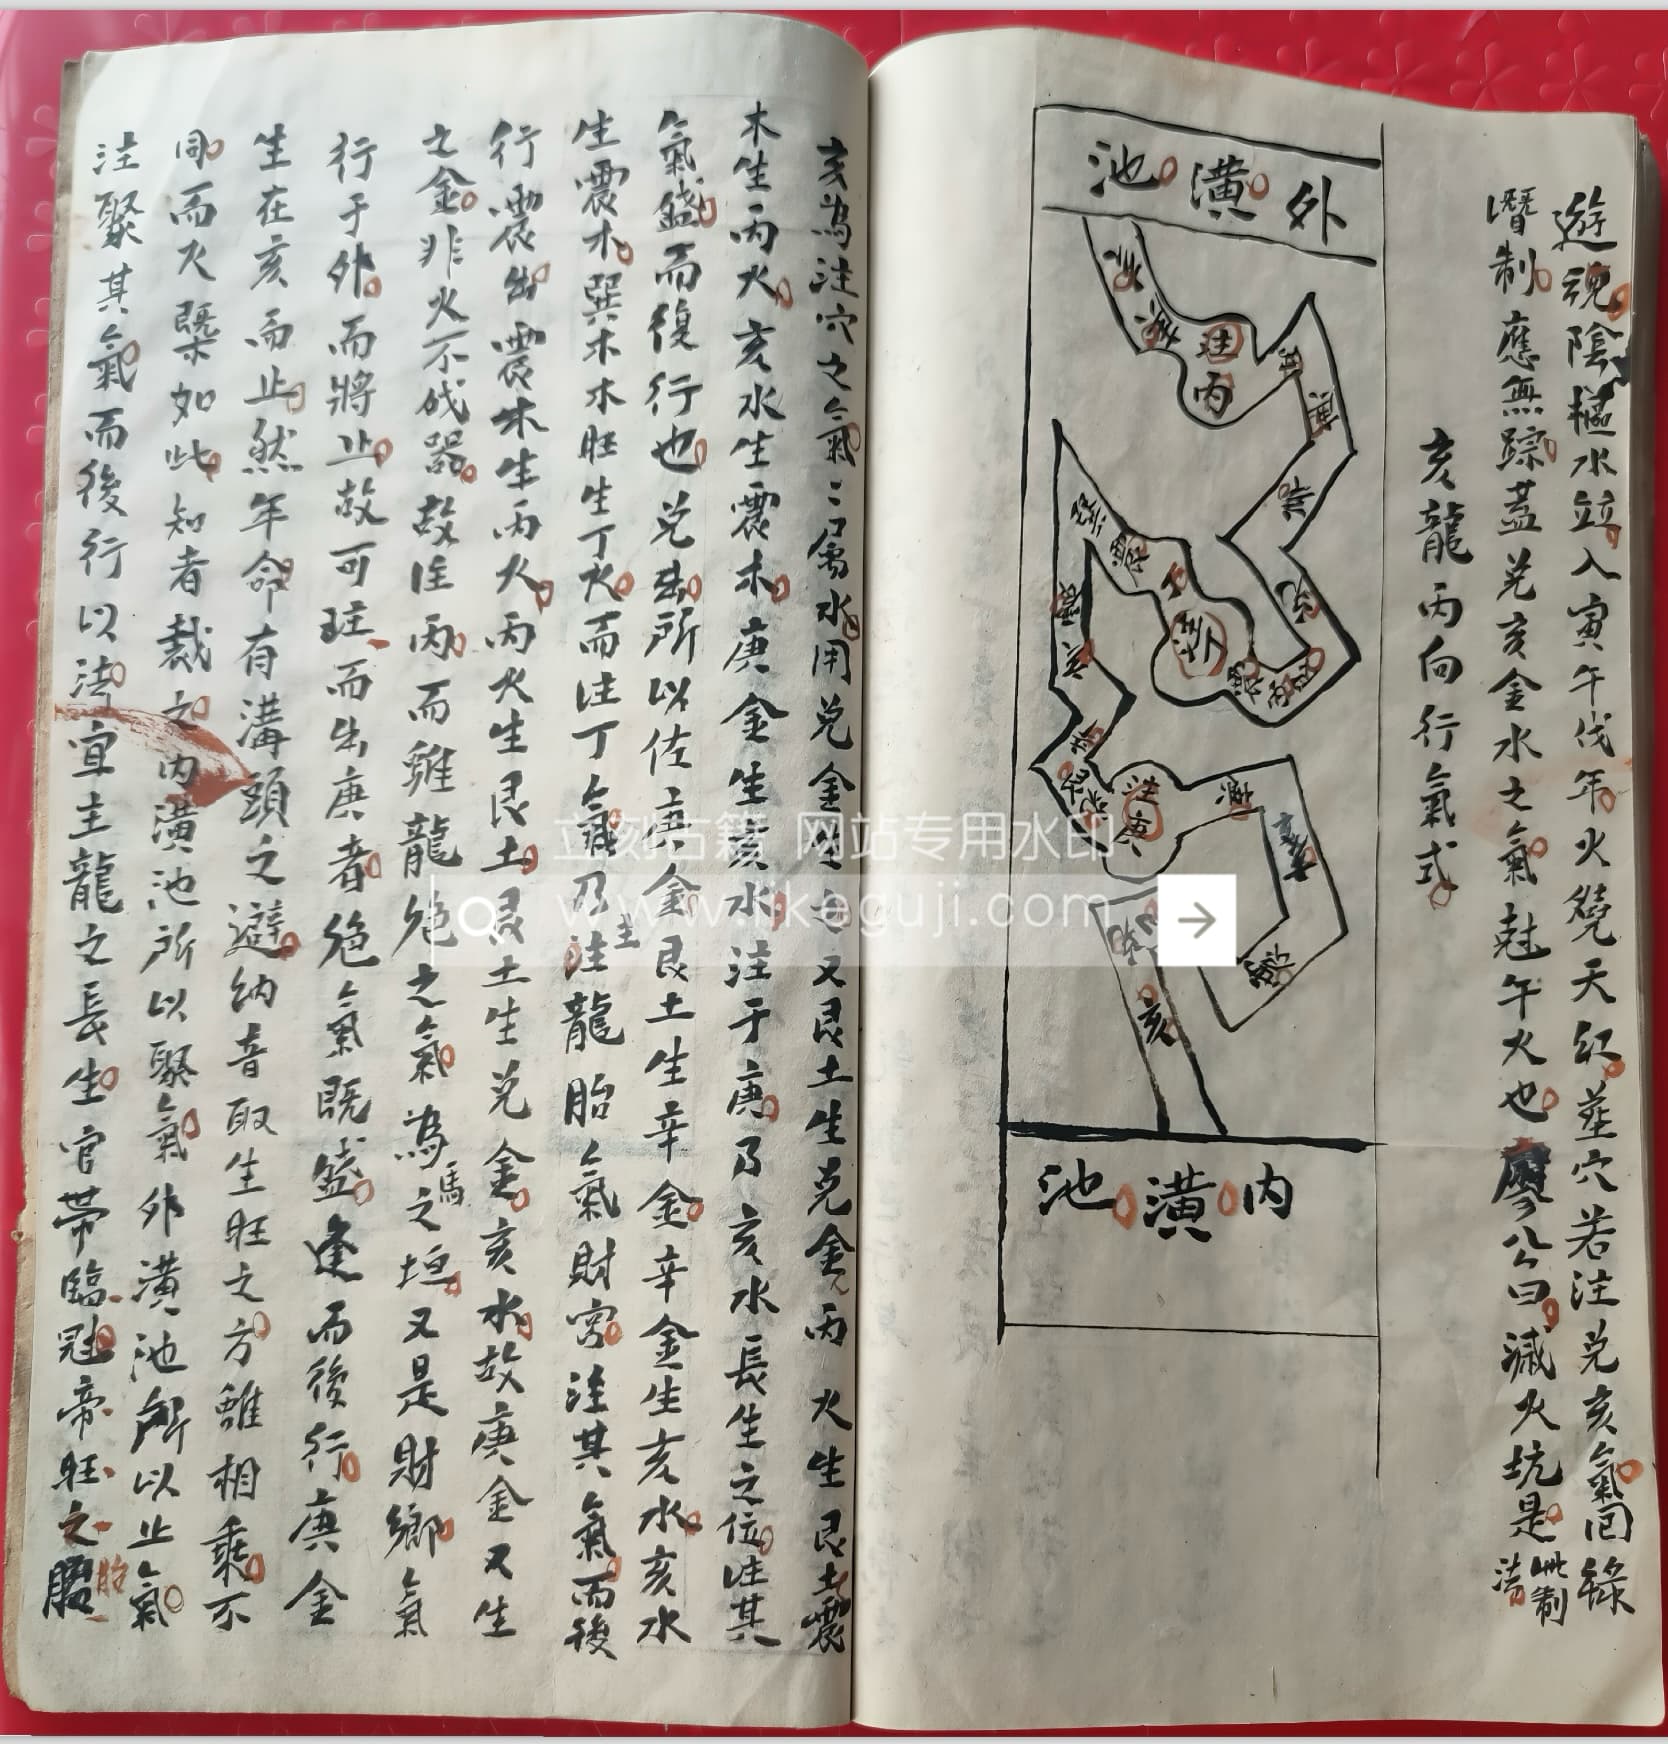 遊魂陰樞水並入寅午伐年火燒天紅塟穴若注兑亥氣囘祿
潛制應無踪蓋兑亥金水之氣尅午火也廖公曰滅火坑是此制法
亥龍丙向行氣式
外潢池
注丙
注丁
注庚
亥
內潢池
亥為注穴之氣二屬水用兑金生也又艮土生兑金丙火生艮土震
木生丙火亥水生震木庚金生亥水注于庚乃亥水長生之位注其
氣盛而復行也兑出所以佐庚金艮土生辛金辛金生亥水亥水
生震木巽木木旺生丁火而注丁氣乃注主龍胎氣財宮注其氣而後
行震出震木生丙火丙火生艮土艮土生兑金亥水故庚金又生
之金非火不成器故注丙而雖龍絶之氣為馬之垣又是財鄉氣
行于外而將止故可註而出庚者絶氣既盛逢而後行庚金
生在亥而止然年命有溝頭之避納音取生旺之方雖相乘不
同而大槩如此知者裁之內潢池所以聚氣外潢池所以止氣
注聚其氣而後行以法宜主龍之長生官帶臨冠帝旺之胎
立刻古籍 网站专用水印
www.likeguji.com